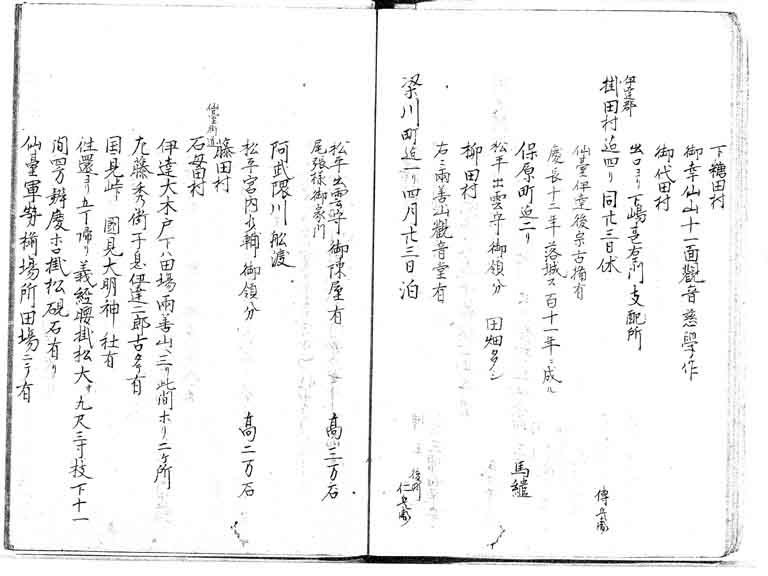 下糠田村
御幸仙山十一面觀音慈學作
御代田村
出口ヨリ下嶋甚右衛門支配所
伊達郡
掛田村ヘ迠四リ 同廿三日休 傳兵衛
仙臺伊達後宗古搆有
慶長十二年落城ス百十一年ニ成ル
保原町迠二リ 馬繼
松平出雲守御領分 田畑多シ
柳田村
右ニ兩善山觀音堂有
梁川町迠一リ四月廿三日泊 後町 仁兵衛
松平出雲守御陳屋有 高三万石
尾張様御家門
阿武隈川 舩渡
松平宮内少輔御領分 高二万石
仙臺街道
藤田村
石母田村
伊達大木戸下ハ田場兩善山ニ三リ此間ホリ二ヶ所
左藤秀衡子息伊達二郎古多有
国見峠 國見大明神社有
往還ヨリ五十間リ義經腰掛松大サ九尺三寸枝下十一
間四方辨慶ホロ掛松硯石有リ
仙臺軍勢搆場所田場ニテ有